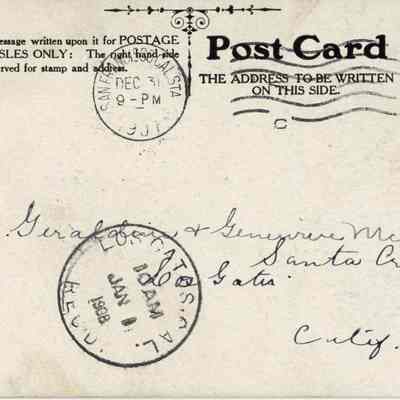 essage written upon it for POSTAGE
SLES ONLY: The right hand side
erved for stamp and address.
Post Card
THE ADDRESS TO BE WRITTEN
ON THIS SIDE.
SAN FRANCISCO, CAL. STA.
DEC 31
9-PM
1907
C
Geraldine & Genevieve Mc
Santa Cr
Los Gatos
Calif.
LOS GATOS, CAL.
10 AM
JAN 1
1908
REC'D.